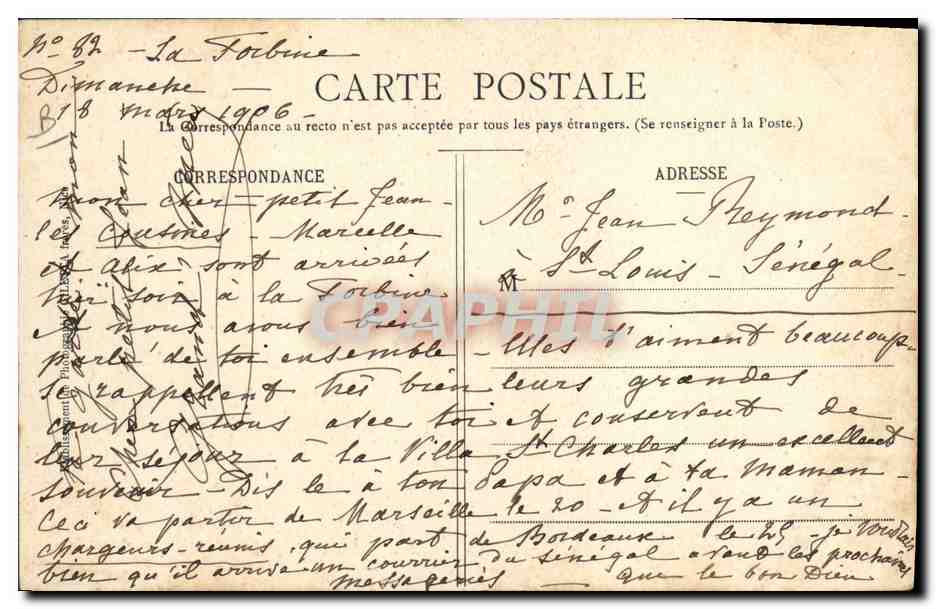 No 82 - La Forbine
Dimanche -
18 mars 1906 -
CARTE POSTALE
La Correspondance au recto n'est pas acceptée par tous les pays étrangers. (Se renseigner à la Poste.)
CORRESPONDANCE
ADRESSE
Mr Jean Reymond -
à St Louis - Sénégal -
M
mon cher petit Jean -
les cousines - Marcelle
et Alix sont arrivées
hier soir à la Forbine
et nous avons bien
parlé de toi ensemble - Elles t'aiment beaucoup -
se rappellent très bien leurs grandes
conversations avec toi et conservent de
leur séjour à la Villa St Charles un excellent
souvenir - Dis le à ton Papa et à ta maman -
Ceci va partir de Marseille le 20 - et il y a un
chargeurs-réunis qui part de Bordeaux le 25 je voudrais
bien qu'il arrive un courrier du Sénégal avant les prochaines
messageries - que le bon Dieu
garde mon
cher petit Jean
Grand
CPAPHIL